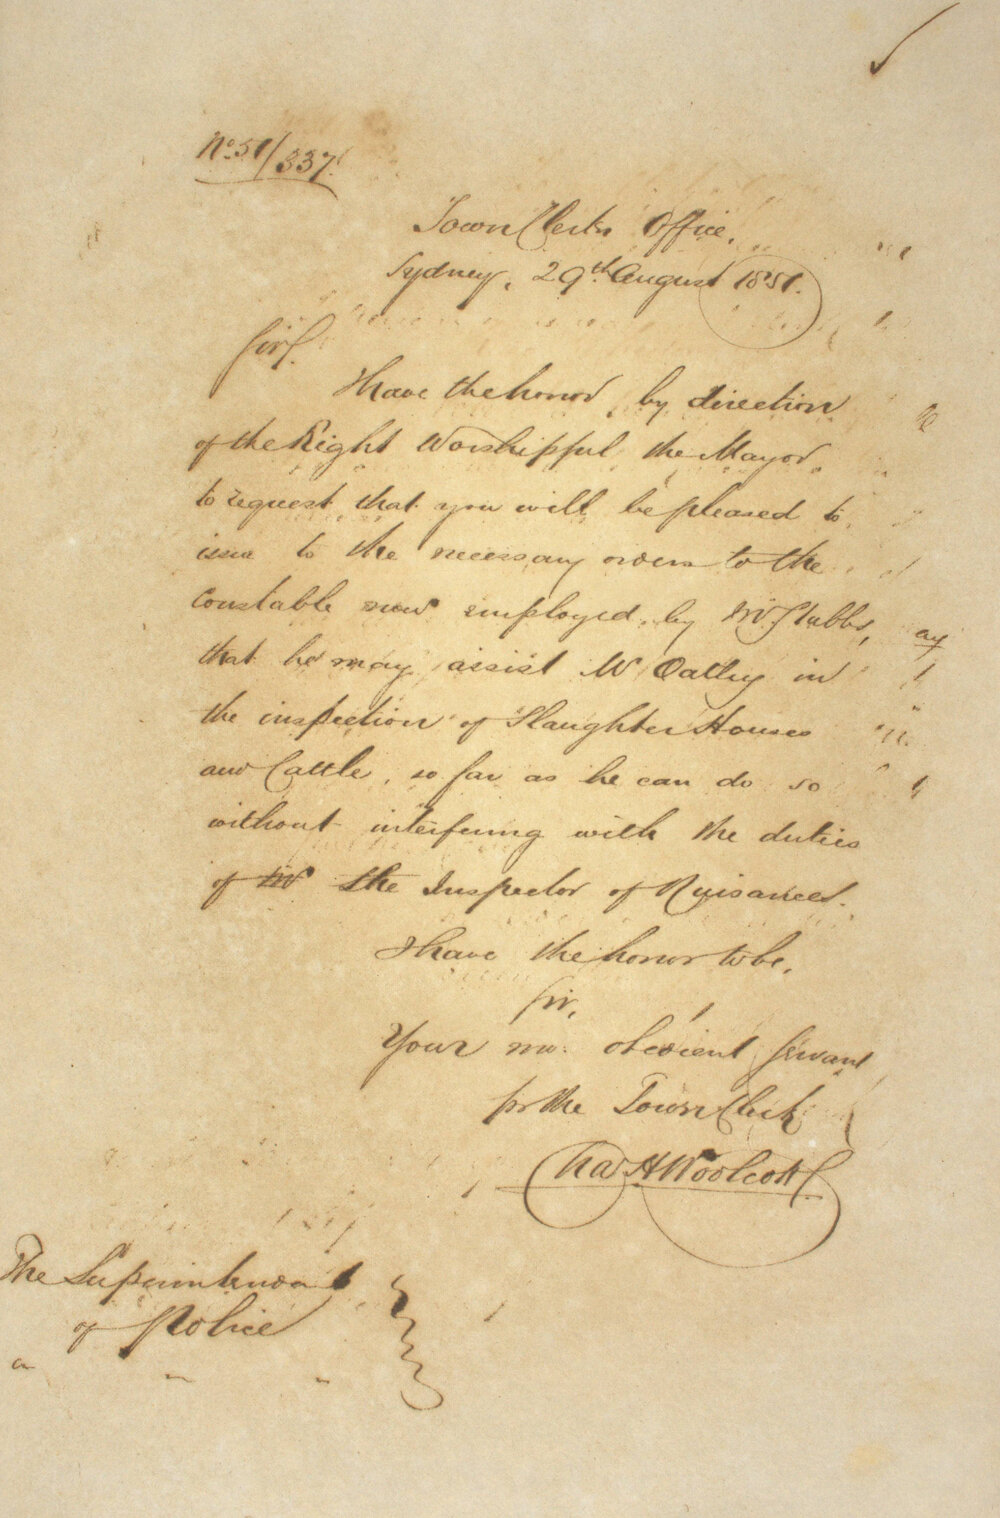 No. 51/337.
Town Clerk's Office,
Sydney, 29th August 1851.
Sir,
I have the honor, by direction
of the Right Worshipful the Mayor,
to request that you will be pleased to
issue to the necessary orders to the
Constable now employed by Mr Stubbs,
that he may assist Mr Oatley in
the inspection of Slaughter Houses
and Cattle, so far as he can do so
without interfering with the duties
of Mr the Inspector of Nuisances.
I have the honor to be,
Sir,
Your mo. obedient Servant
for the Town Clerk
Chas H Woolcott
The Superintendent
of Police